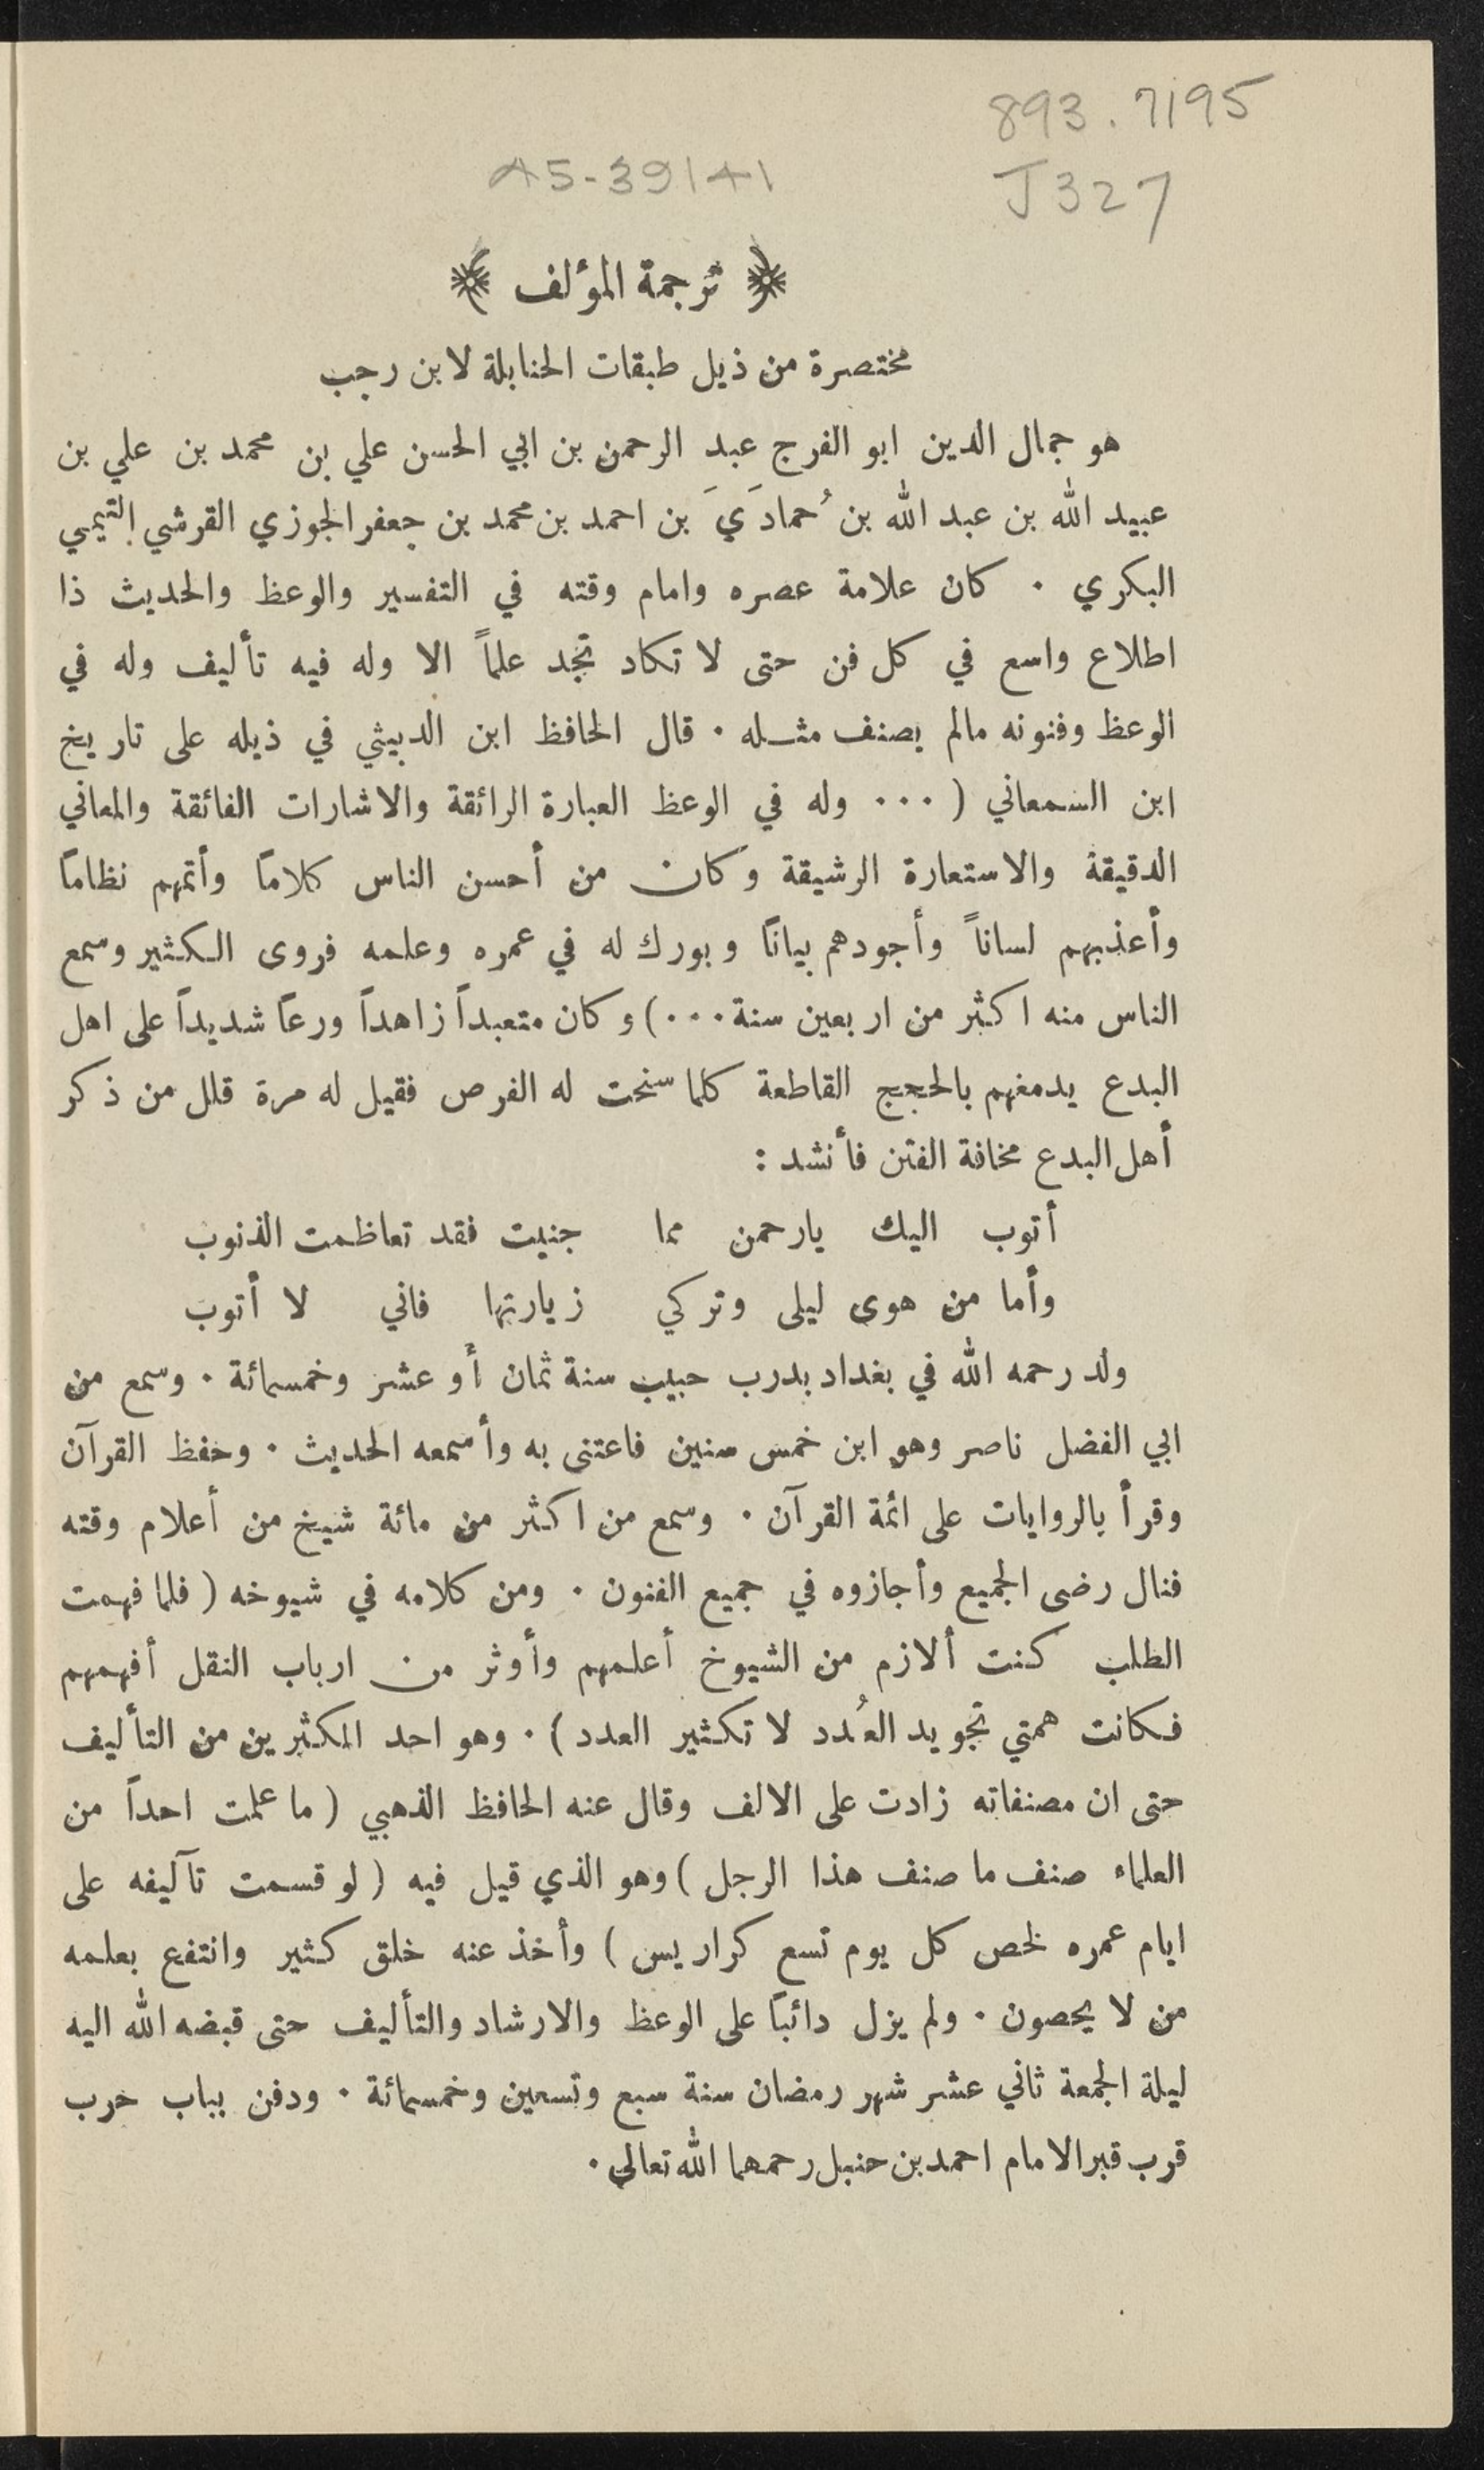 893.7195
A5-39141
J327
﴿ ترجمة المؤلف ﴾
مختصرة من ذيل طبقات الحنابلة لابن رجب
هو جمال الدين ابو الفرج عبد الرحمن بن ابي الحسن علي بن محمد بن علي بن
عبيد الله بن عبد الله بن حُمادَيَ بن احمد بن محمد بن جعفر الجوزي القرشي التيمي
البكري . كان علامة عصره وامام وقته في التفسير والوعظ والحديث ذا
اطلاع واسع في كل فن حتى لا تكاد تجد علماً الا وله فيه تأليف وله في
الوعظ وفنونه مالم يصنف مثله . قال الحافظ ابن الدبيثي في ذيله على تاريخ
ابن السمعاني ( ... وله في الوعظ العبارة الرائقة والاشارات الفائقة والمعاني
الدقيقة والاستعارة الرشيقة وكان من أحسن الناس كلاماً وأتمهم نظاماً
وأعذبهم لساناً وأجودهم بياناً وبورك له في عمره وعلمه فروى الكثير وسمع
الناس منه اكثر من اربعين سنة ... ) وكان متعبداً زاهداً ورعاً شديداً على اهل
البدع يدمغهم بالحجج القاطعة كلما سنحت له الفرص فقيل له مرة قلل من ذكر
أهل البدع مخافة الفتن فأنشد :
أتوب اليك يارحمن مما جنيت فقد تعاظمت الذنوب
وأما من هوى ليلى وتركي زيارتها فاني لا أتوب
ولد رحمه الله في بغداد بدرب حبيب سنة ثمان أو عشر وخمسمائة . وسمع من
ابي الفضل ناصر وهو ابن خمس سنين فاعتنى به وأسمعه الحديث . وحفظ القرآن
وقرأ بالروايات على ائمة القرآن . وسمع من اكثر من مائة شيخ من أعلام وقته
فنال رضى الجميع وأجازوه في جميع الفنون . ومن كلامه في شيوخه ( فلما فهمت
الطلب كنت ألازم من الشيوخ أعلمهم وأوثر من ارباب النقل أفهمهم
فكانت همتي تجويد العُدد لا تكثير العدد ) . وهو احد المكثرين من التأليف
حتى ان مصنفاته زادت على الالف وقال عنه الحافظ الذهبي ( ما علمت احداً من
العلماء صنف ما صنف هذا الرجل ) وهو الذي قيل فيه ( لو قسمت تآليفه على
ايام عمره لخص كل يوم تسع كراريس ) وأخذ عنه خلق كثير وانتفع بعلمه
من لا يحصون . ولم يزل دائباً على الوعظ والارشاد والتأليف حتى قبضه الله اليه
ليلة الجمعة ثاني عشر شهر رمضان سنة سبع وتسعين وخمسمائة . ودفن بباب حرب
قرب قبر الامام احمد بن حنبل رحمهما الله تعالى .